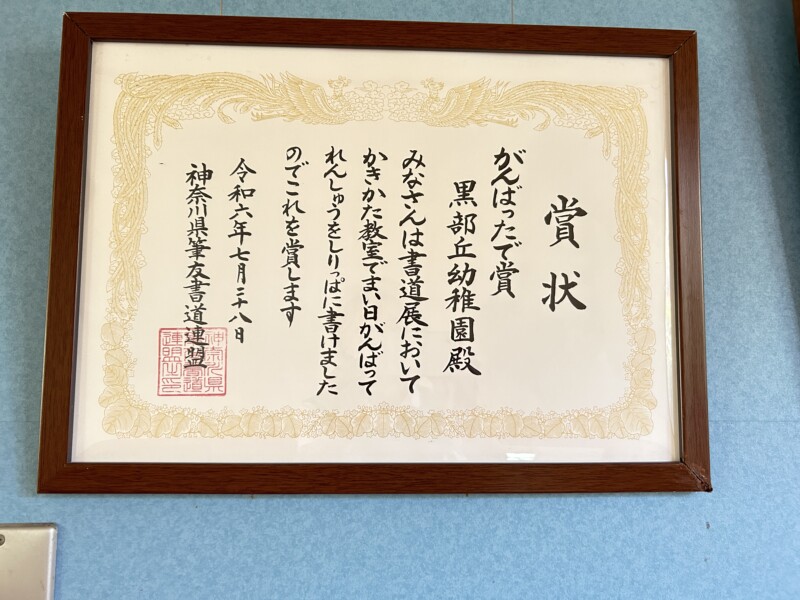 賞状
がんばったで賞
黒部丘幼稚園殿
みなさんは書道展において
かきかた教室でまい日がんばって
れんしゅうをしりっぱに書けました
のでこれを賞します
令和六年七月二十八日
神奈川県筆友書道連盟